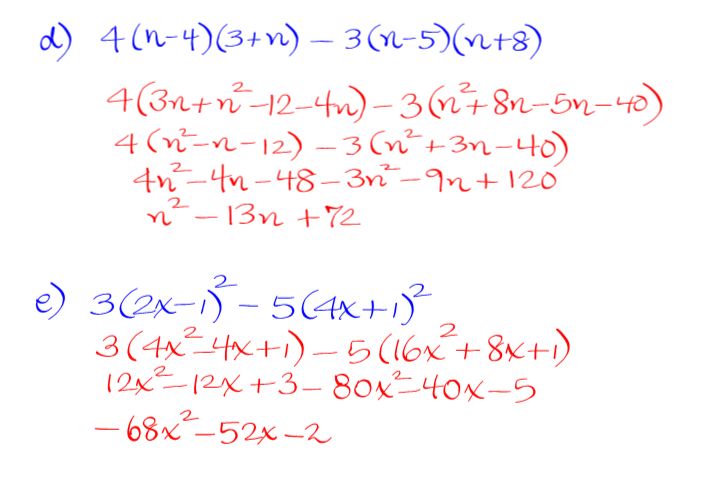 d) 4(n-4)(3+n) - 3(n-5)(n+8)
4(3n+n²-12-4n) - 3(n²+8n-5n-40)
4(n²-n-12) - 3(n²+3n-40)
4n²-4n-48-3n²-9n+120
n²-13n+72
e) 3(2x-1)² - 5(4x+1)²
3(4x²-4x+1) - 5(16x²+8x+1)
12x²-12x+3-80x²-40x-5
-68x²-52x-2